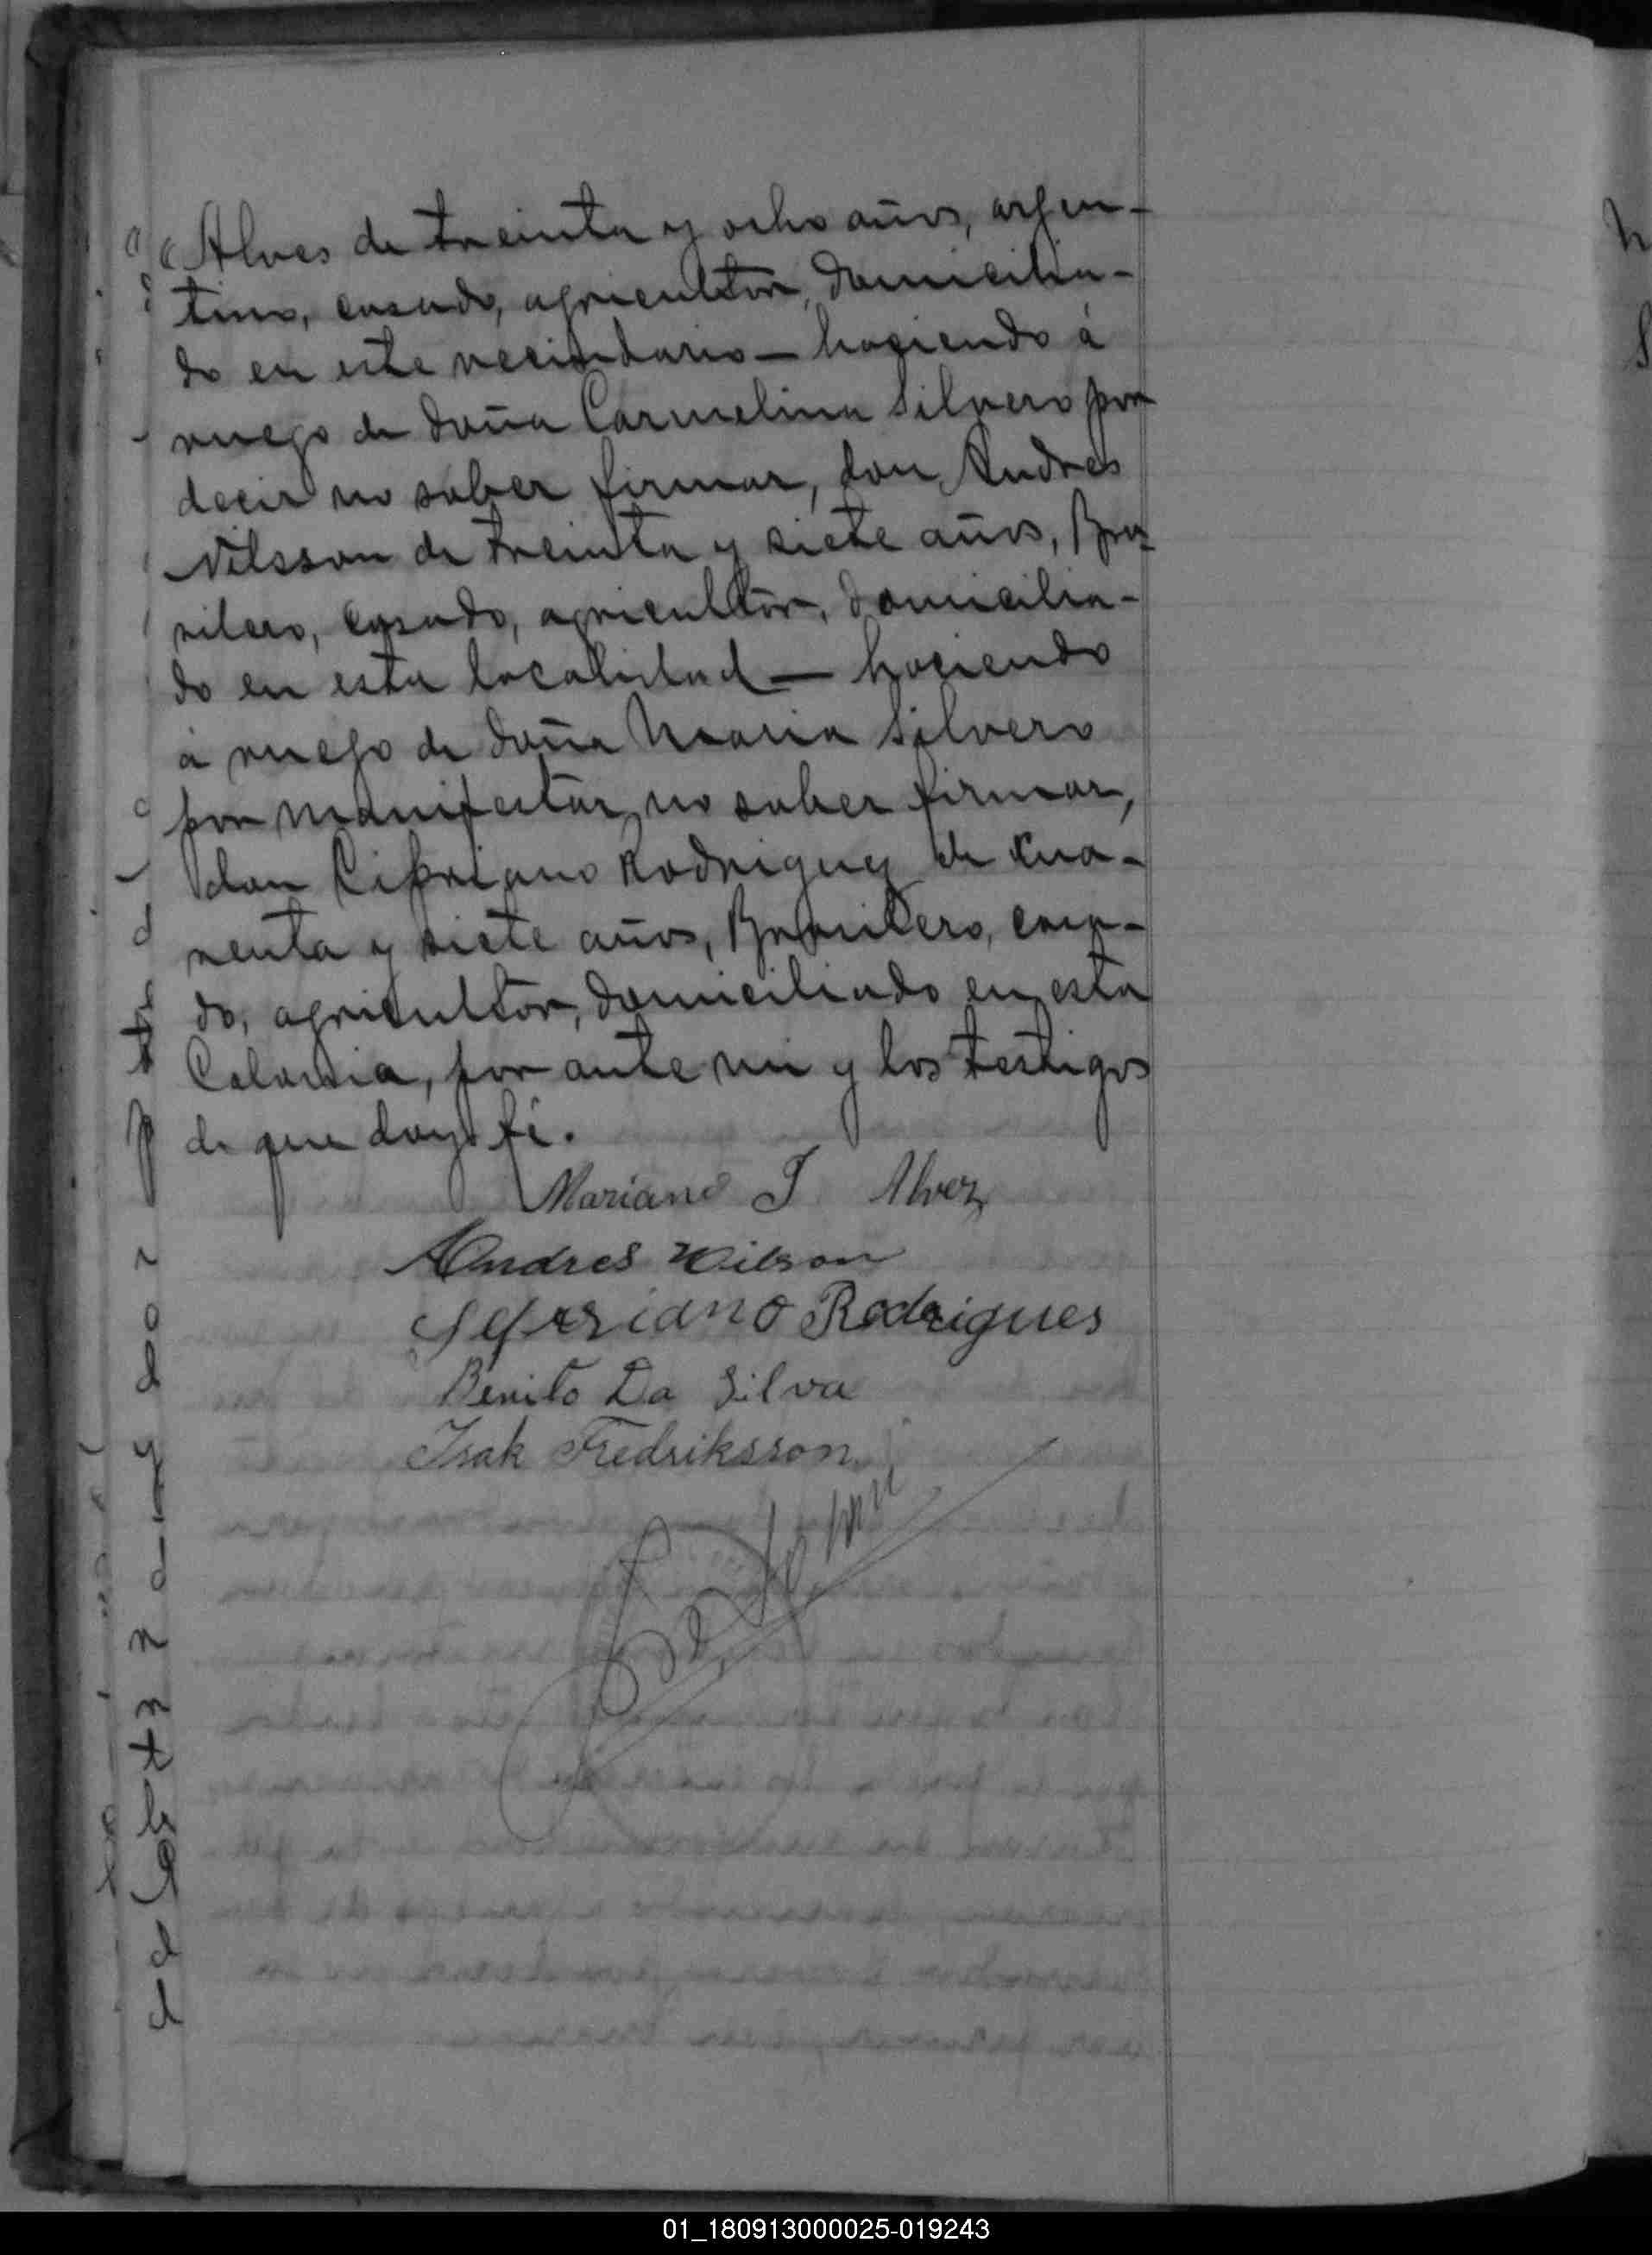 Alves de treinta y ocho años, argen-
tino, casado, agricultor, domicilia-
do en este vecindario — haciendo á
ruego de doña Carmelina Silvero por
decir no saber firmar, don Andres
Nilsson de treinta y siete años, Bra-
silero, casado, agricultor, domicilia-
do en esta localidad — haciendo
á ruego de doña Maria Silvero
por manifestar no saber firmar,
don Cipriano Rodriguez de cua-
renta y siete años, Brasilero, casa-
do, agricultor, domiciliado en esta
Colonia, por ante mi y los testigos
de que doy fé.
Mariano J Alvez
Andres Nilson
Rodrigues
Benito Da Silva
Isak Fredriksson
01_180913000025-019243